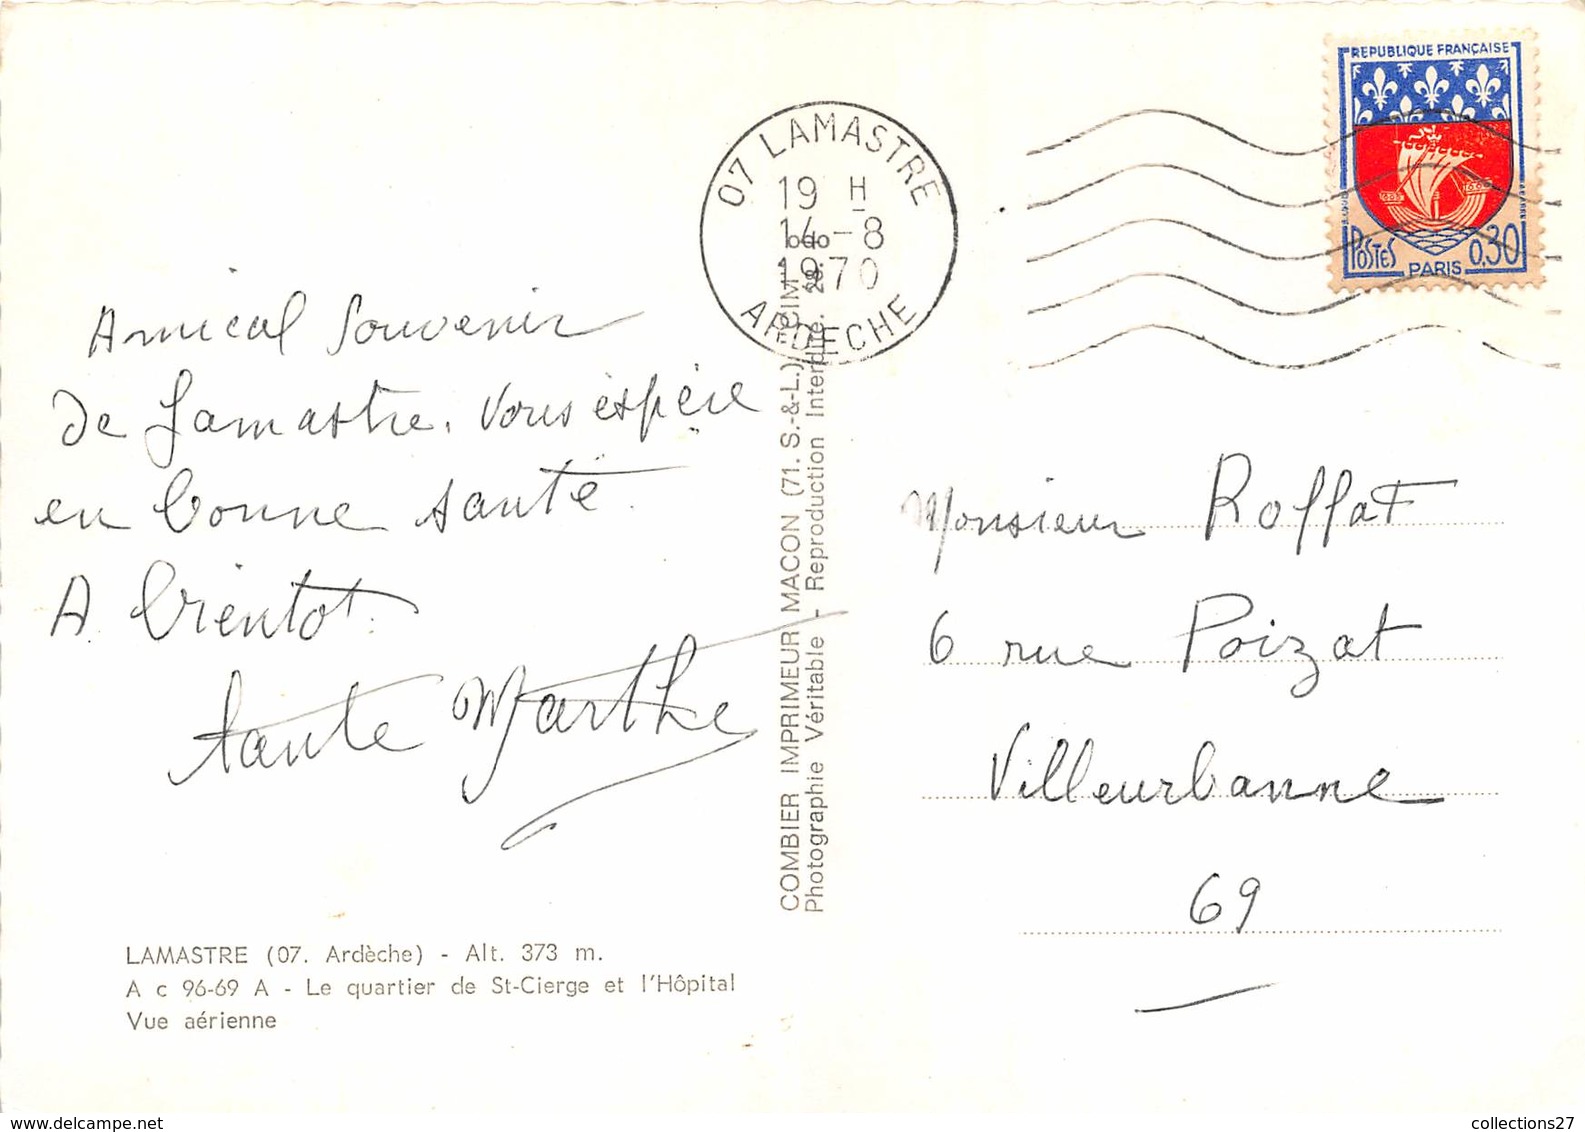 REPUBLIQUE FRANÇAISE
POSTES
PARIS
0,30
07 LAMASTRE
19 H
14-8
1970
ARDECHE
Amical Souvenir
de Lamastre. Vous espère
en bonne santé.
A bientot.
tante Marthe
COMBIER IMPRIMEUR MACON (71. S.-&-L.) "CIM"
Photographie Véritable - Reproduction Interdite.
Monsieur Roffat
6 rue Poizat
Villeurbanne
69
LAMASTRE (07. Ardèche) - Alt. 373 m.
A c 96-69 A - Le quartier de St-Cierge et l'Hôpital
Vue aérienne
collections27